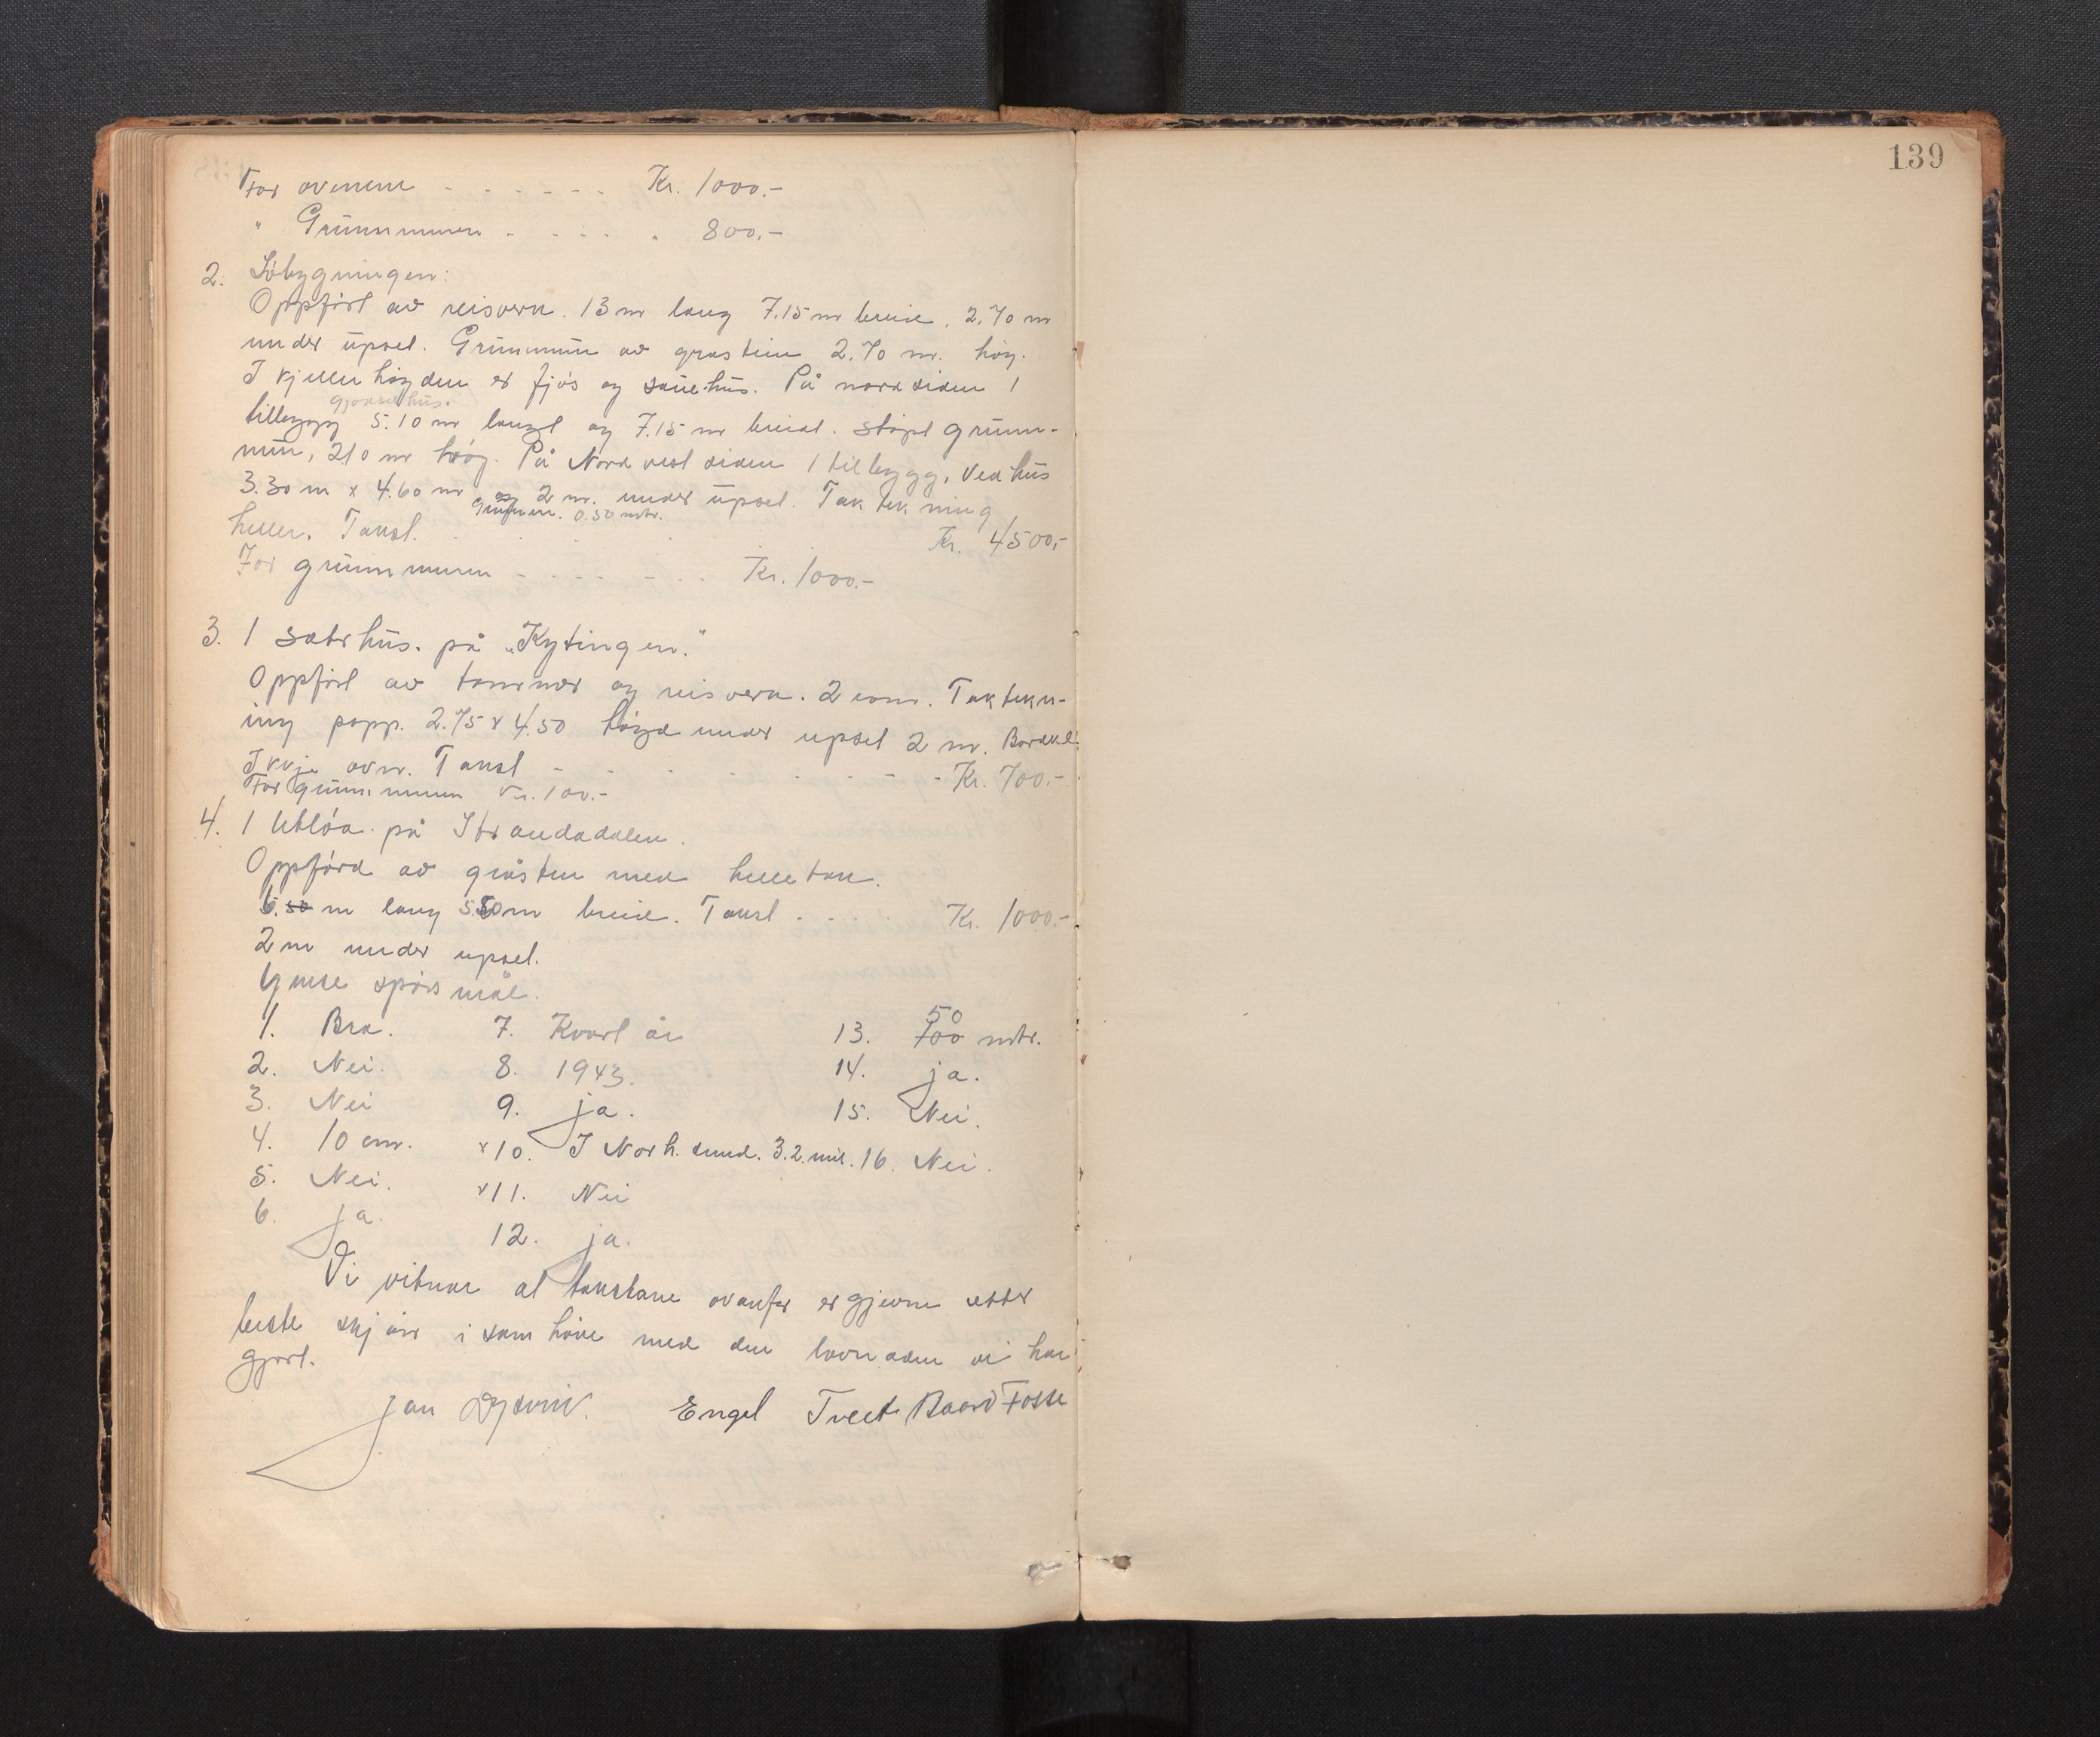 For ovnene - - - - - - Kr. 1000.-
" Grunnmuren - - - - - 800.-
2. Löbygningen:
Oppfört av reisverk. 13 m lang 7.15 m breie. 2.70 m
under upsel. Grunnmur av grastein 2.70 m. høg.
I kjellerhøgden er fjøs og sauehus. På nordsiden 1
gjødselhus.
tilbygg 5.10 m langt og 7.15 m breidt. støpt grunn-
mur, 210 m høg. På Nordvest siden 1 tilbygg, Vedhus
3.30 m x 4.60 m og 2 m. under upsel. Taktekning
grunnm. 0.50 mtr.
heller. Takst. Kr. 4500,-
For grunnmuren - - - - - - Kr. 1000.-
3. 1 sæterhus. på „Kytingen."
Oppfört av tømmer og reisverk. 2 rom. Taktekn-
ing papp. 2.75 x 4.50 høgd under upsel 2 m. Bordkl.
Ikkje ovn. Takst - - - - - - - Kr. 700.-
For grunnmuren Kr. 100.-
4. 1 Utlöa på Strandadalen.
Oppförd av gråstein med helletak.
6.50 m lang 5.50 m breie. Takst . . . . Kr. 1000.-
2 m under upsel.
Ymse spörsmål.
1. Bra. 7. Kvart år 13. 50 100 mtr.
2. Nei. 8. 1943. 14. ja.
3. Nei 9. ja. 15. Nei.
4. 10 cm. x10. I Norh.sund. 3.2 mil. 16. Nei.
5. Nei. x11. Nei
6. ja. 12. ja.
Vi vitnar at takstane ovanfor er gjevne etter
beste skjøn i samhöve med den lovnaden vi har
gjort.
Jan Dysvik. Engel Tveit Baard Fosse
139